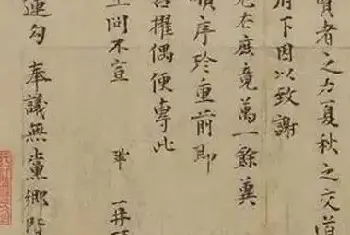 賢者之力夏秋之交道
府下因以致謝
左右庶竟萬一餘冀
順序珍重前即
召擢偶便專此
上問不宣 鞏 再拜
運勾 奉議無黨鄉賢